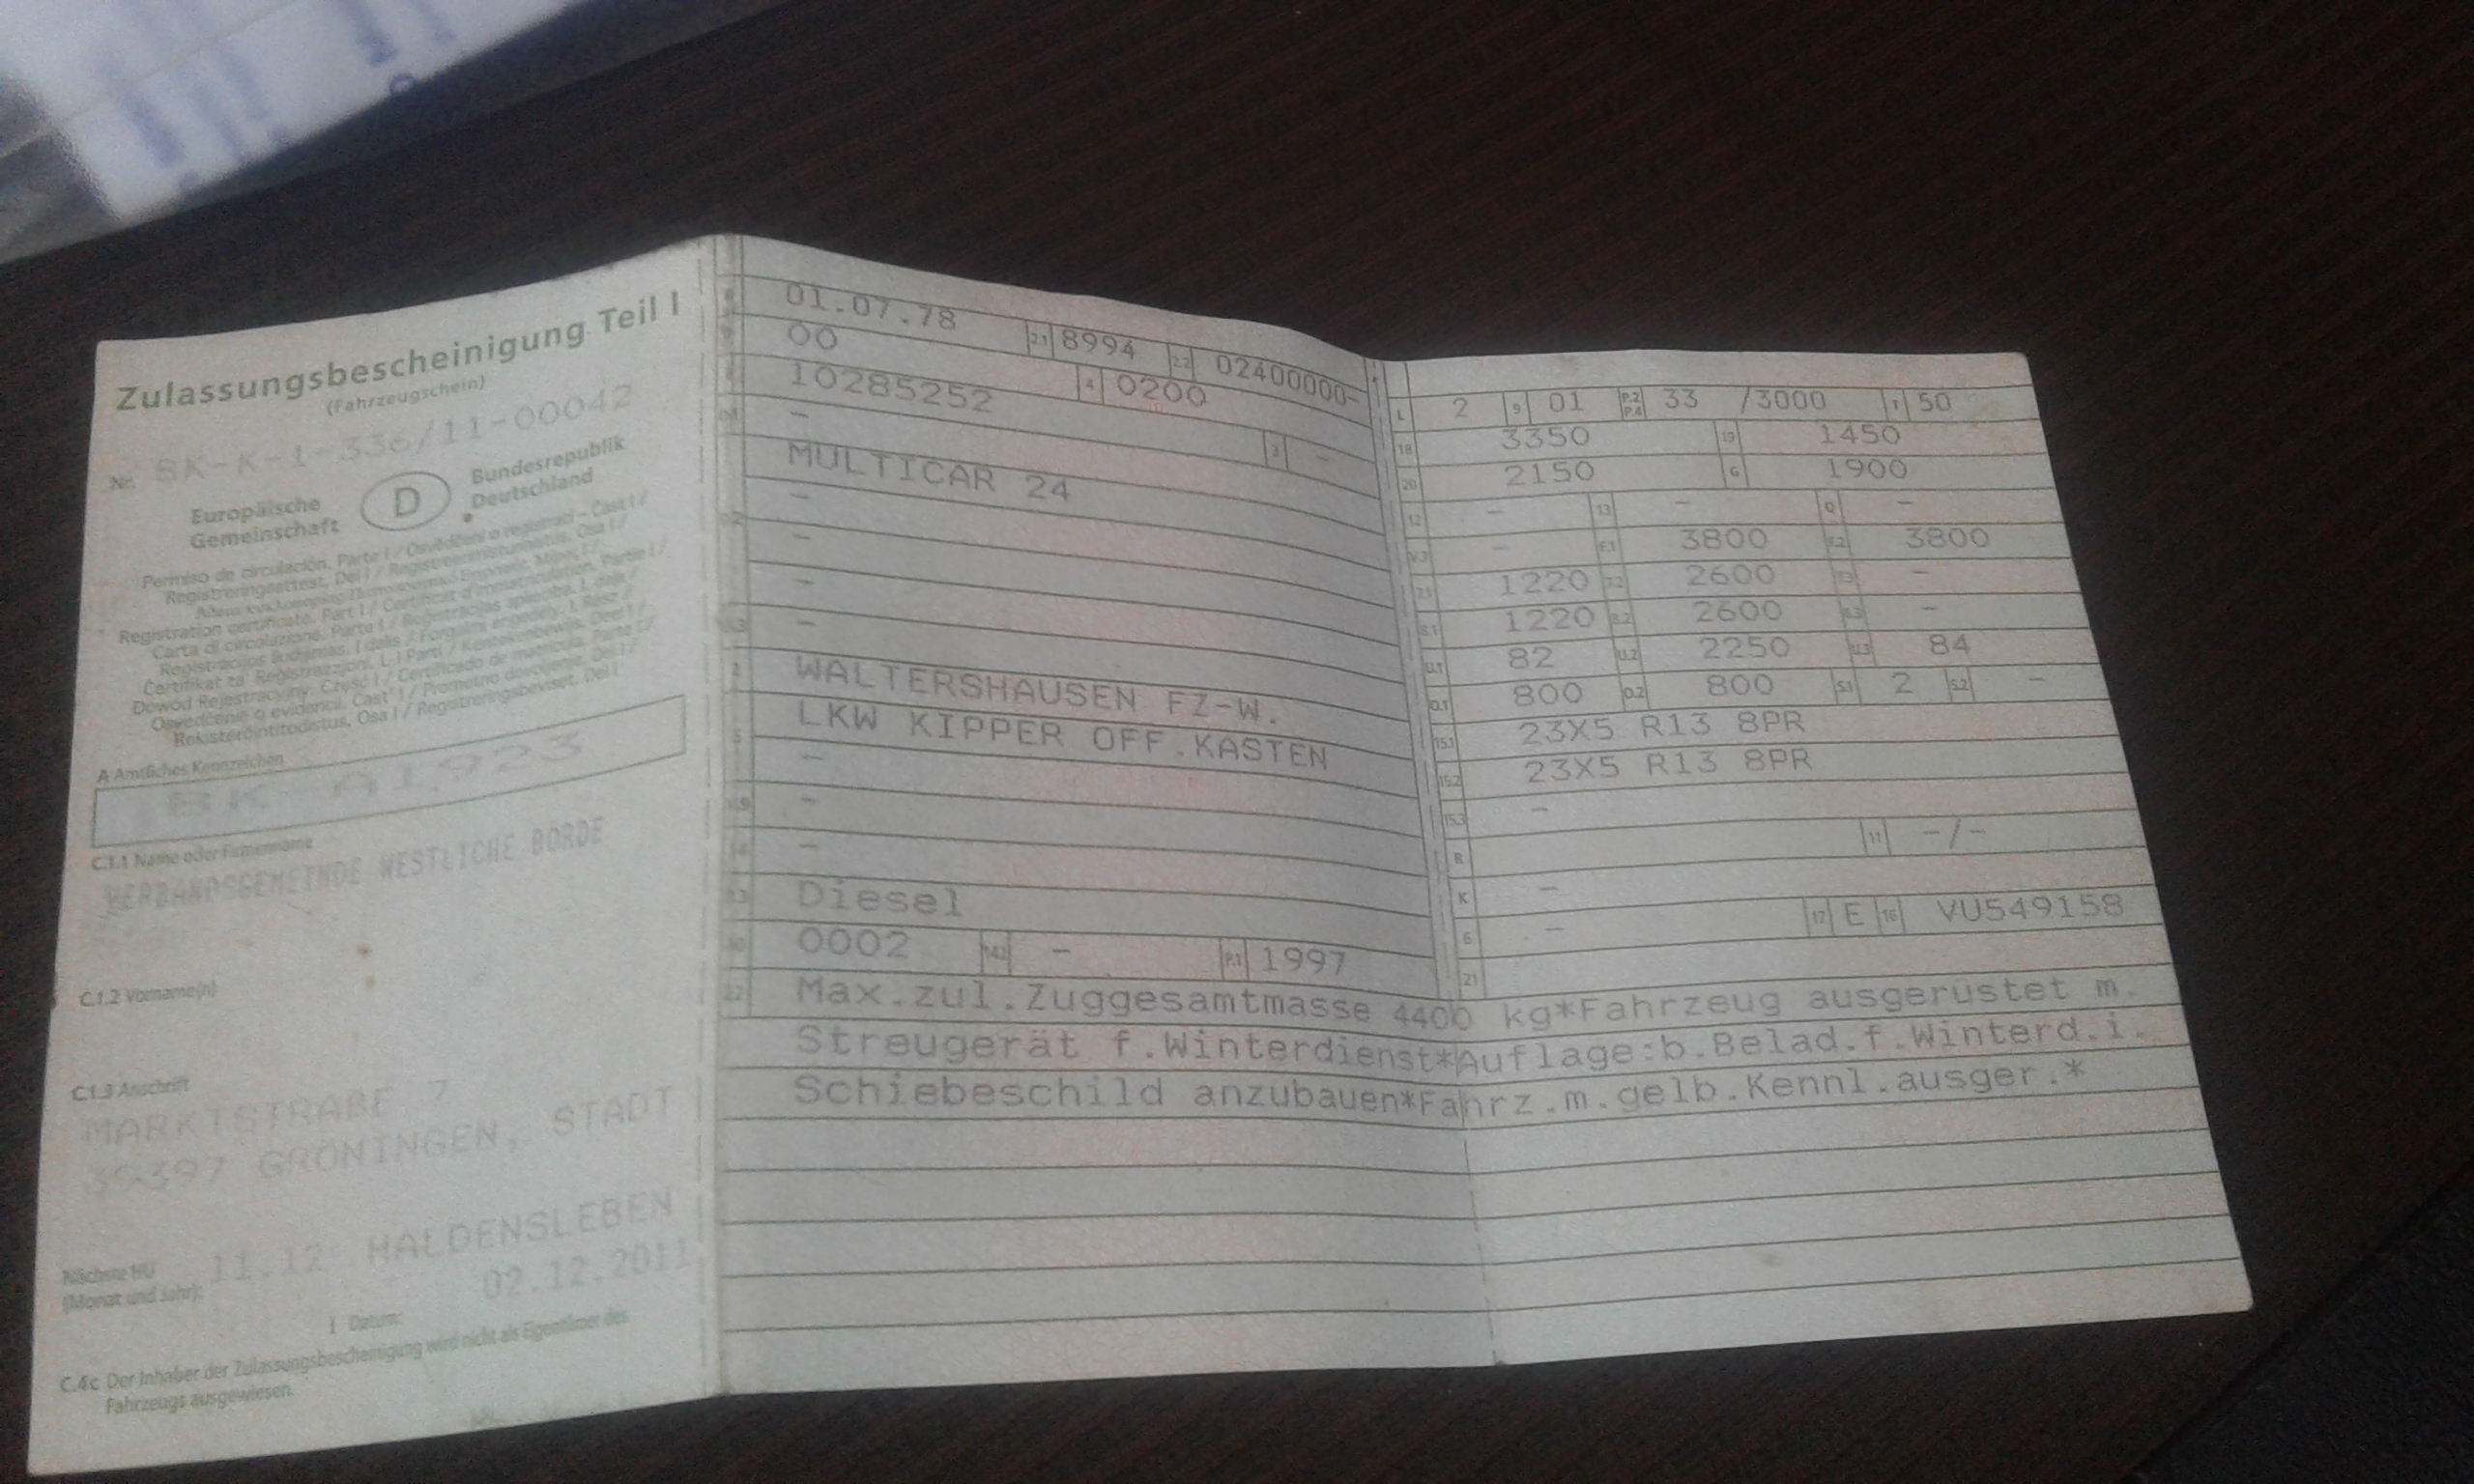 Zulassungsbescheinigung Teil I
(Fahrzeugschein)
Nr. BK-K-1-336/11-00042
Europäische Gemeinschaft
D
Bundesrepublik Deutschland
Permiso de circulación. Parte I / Osvědčení o registraci – Část I /
Registreringsattest. Del I / Registreerimistunnistus. Osa I /
Registration certificate. Part I / Certificat d'immatriculation. Partie I /
Carta di circolazione. Parte I / Reģistrācijas apliecība. I. daļa /
Registracijos liudijimas. I dalis / Forgalmi engedély. I. Rész /
Ċertifikat ta' Reġistrazzjoni. L-I Parti / Kentekenbewijs. Deel I /
Dowód Rejestracyjny. Część I / Certificado de matrícula. Parte I /
Osvedčenie o evidencii. Časť I / Prometno dovoljenje. Del I /
Rekisteröintitodistus. Osa I / Registreringsbeviset. Del I
A Amtliches Kennzeichen
BK-A1923
C.1.1 Name oder Firmenname
VERBANDSGEMEINDE WESTLICHE BÖRDE
C.1.2 Vorname(n)
C.1.3 Anschrift
MARKTSTRAßE 7
39397 GRÖNINGEN, STADT
Nächste HU
(Monat und Jahr):
11.12 HALDENSLEBEN
Datum: 02.12.2011
C.4c Der Inhaber der Zulassungsbescheinigung wird nicht als Eigentümer des
Fahrzeugs ausgewiesen.
01.07.78 2.1 8994 2.2 02400000-
00
10285252 4 0200
- 3 -
MULTICAR 24
-
-
-
-
2 WALTERSHAUSEN FZ-W.
5 LKW KIPPER OFF.KASTEN
-
V.9 -
14 -
P.3 Diesel
10 0002 14.1 - P.1 1997
L 2 9 01 P.2 P.4 33 /3000 T 50
18 3350 19 1450
20 2150 G 1900
12 - 13 - Q -
V.7 - F.1 3800 F.2 3800
7.1 1220 7.2 2600 7.3 -
8.1 1220 8.2 2600 8.3 -
U.1 82 U.2 2250 U.3 84
O.1 800 O.2 800 S.1 2 S.2 -
15.1 23X5 R13 8PR
15.2 23X5 R13 8PR
15.3 -
R 11 -/-
K -
6 - 17 E 16 VU549158
21
22 Max.zul.Zuggesamtmasse 4400 kg*Fahrzeug ausgerüstet m.
Streugerät f.Winterdienst*Auflage:b.Belad.f.Winterd.i.
Schiebeschild anzubauen*Fahrz.m.gelb.Kennl.ausger.*